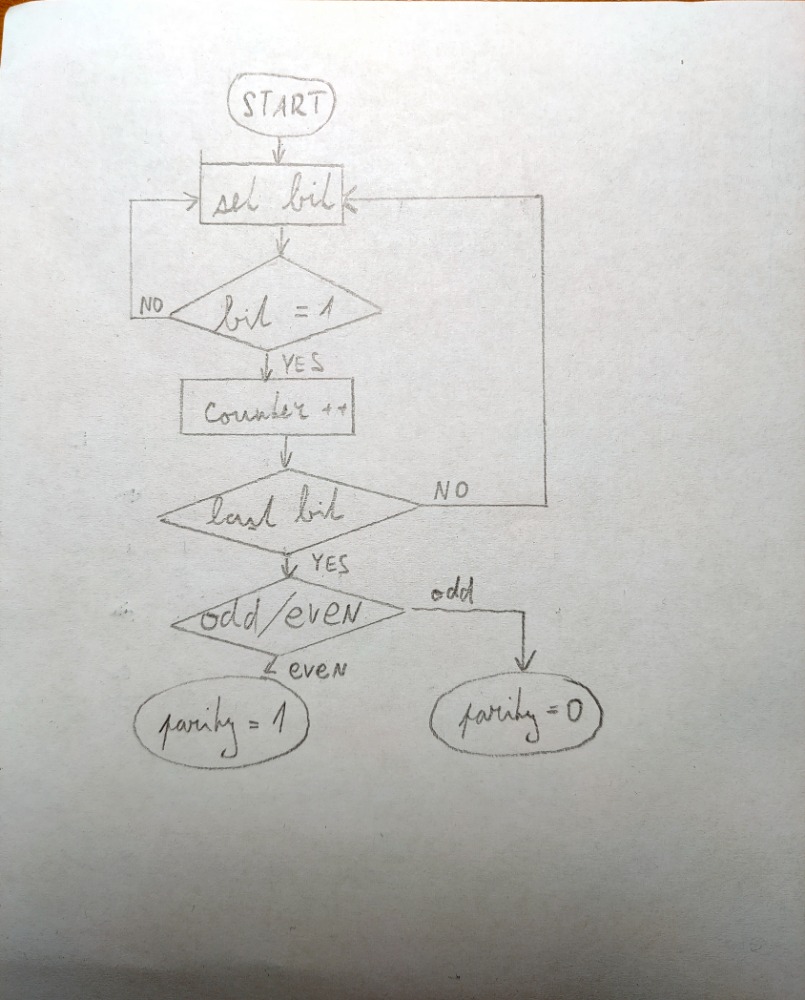 START
set bit
bit = 1
NO
YES
Counter ++
last bit
NO
YES
odd/eveN
odd
eveN
parity = 1
parity = 0